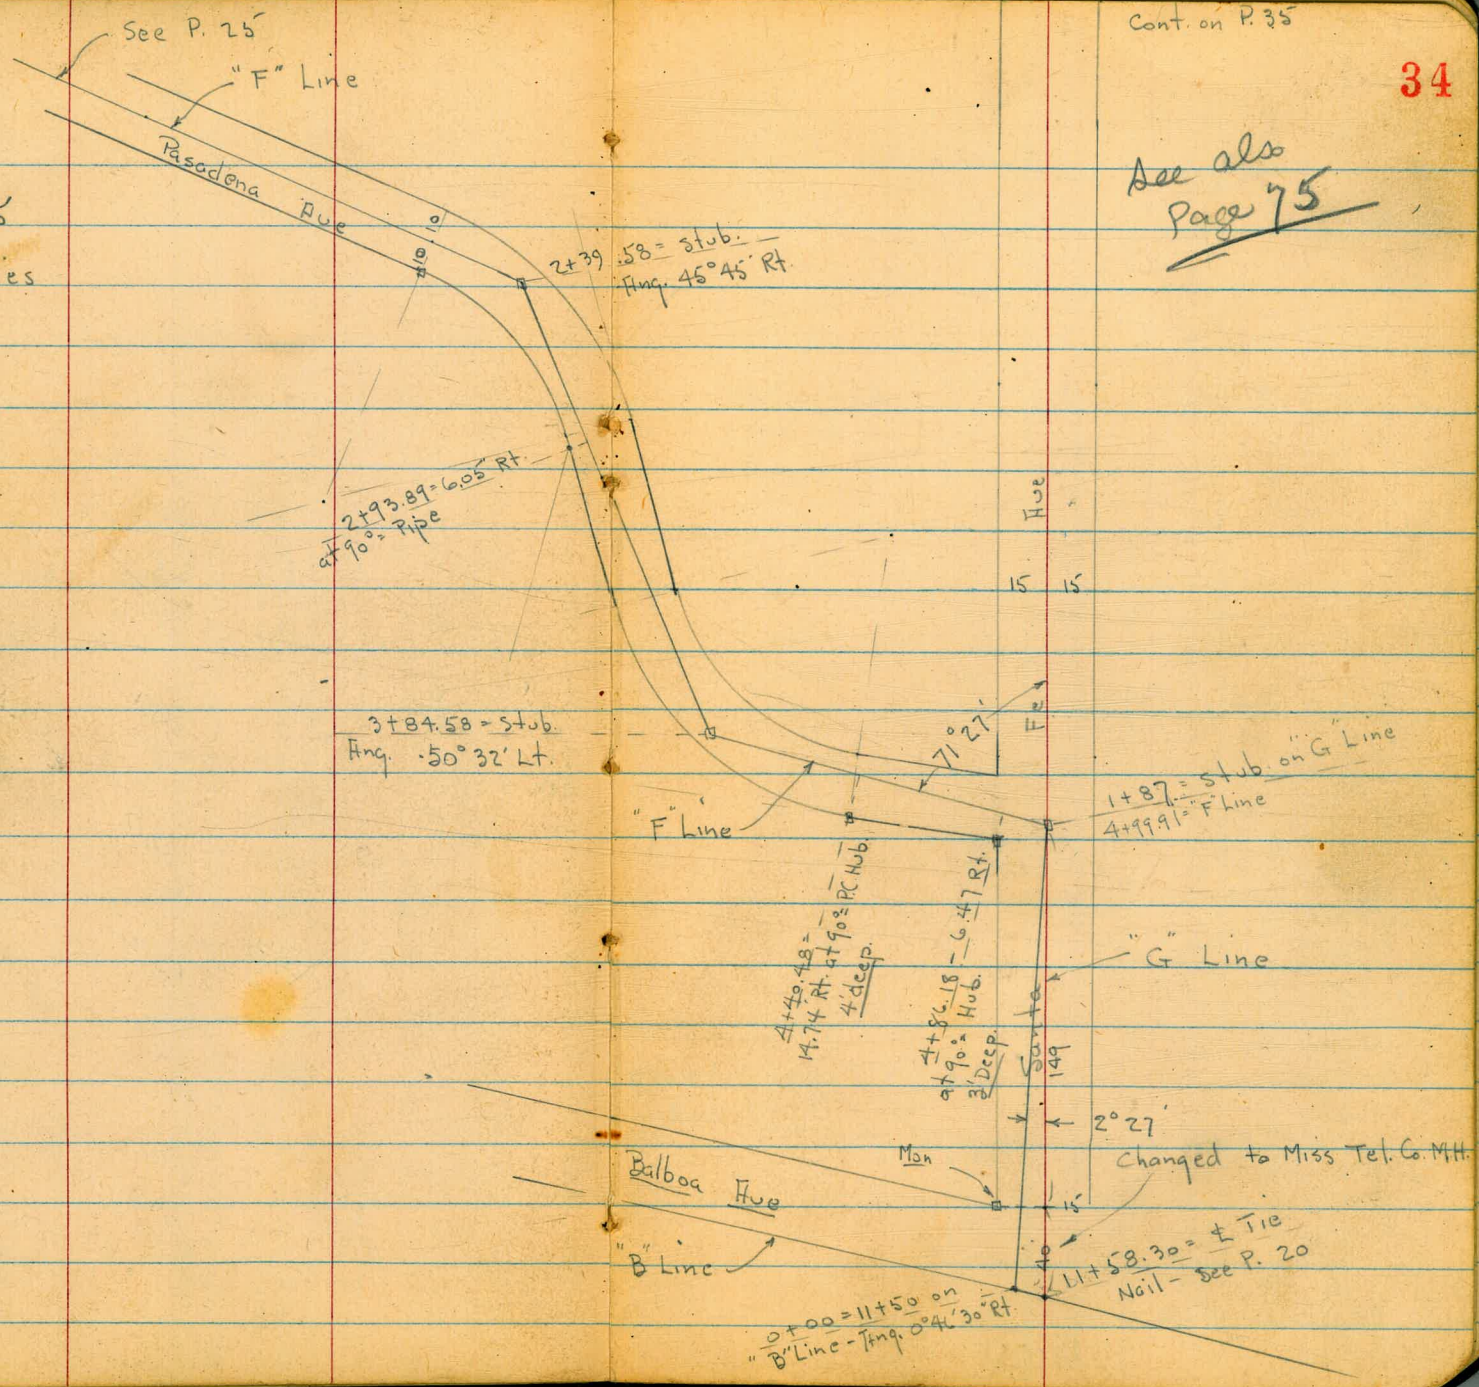 See P. 25
Cont. on P. 35
34
"F" Line
Pasadena Ave
See also
Page 75
10
10
es
2+39.58 = Stub.
Ang. 45°45' Rt.
2+93.89 = 6.05 Rt.
at 90° = Pipe
Ave
15
15
3+84.58 = Stub.
Ang. 50°32' Lt.
71°27'
Fe
"F" Line
1+87. = Stub. on "G" Line
4+99.91 = "F" Line
4+40.48 =
14.74 Rt. at 90° = P.C Hub.
4' deep.
4+86.18 - 6.47 Rt.
at 90° = Hub.
3' Deep.
"G" Line
Santa
149
2°27'
Changed to Miss Tel. Co. M.H.
Mon
15
Balboa Ave
"B" Line
40
11+58.30 = ℄ Tie
Nail - See P. 20
0+00 = 11+50 on
"B" Line - Ang. 0°46'30" Rt.